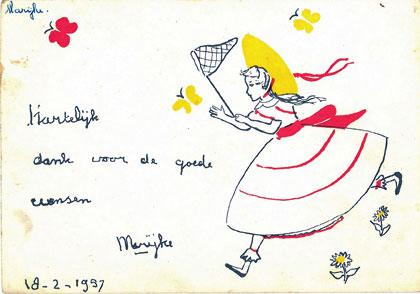 Marijke.
Hartelijk
dank voor de goede
wensen
Marijke
18-2-1957